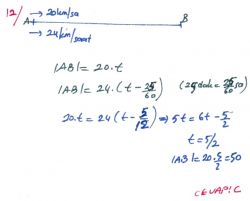 12/
→ 20km/sa
A B
→ 24km/saat
|AB| = 20.t
|AB| = 24.(t - 25/60) (25dak = 25/60 sa)
20.t = 24(t - 5/12) ⇒ 5t = 6t - 5/2
t = 5/2
|AB| = 20.5/2 = 50
CEVAP: C